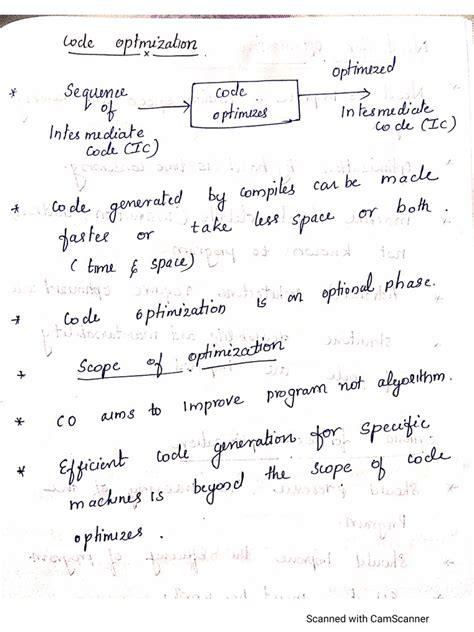 Code optmization
* Sequence of Intermediate Code (IC) → code optimizer → optimized Intermediate code (IC)
* Code generated by compiler can be made
faster or take less space or both.
( time & space)
* Code optimization is an optional phase.
* Scope of optimization
* CO aims to improve program not algorithm.
* Efficient code generation for specific
machines is beyond the scope of code
optimizer.
Scanned with CamScanner